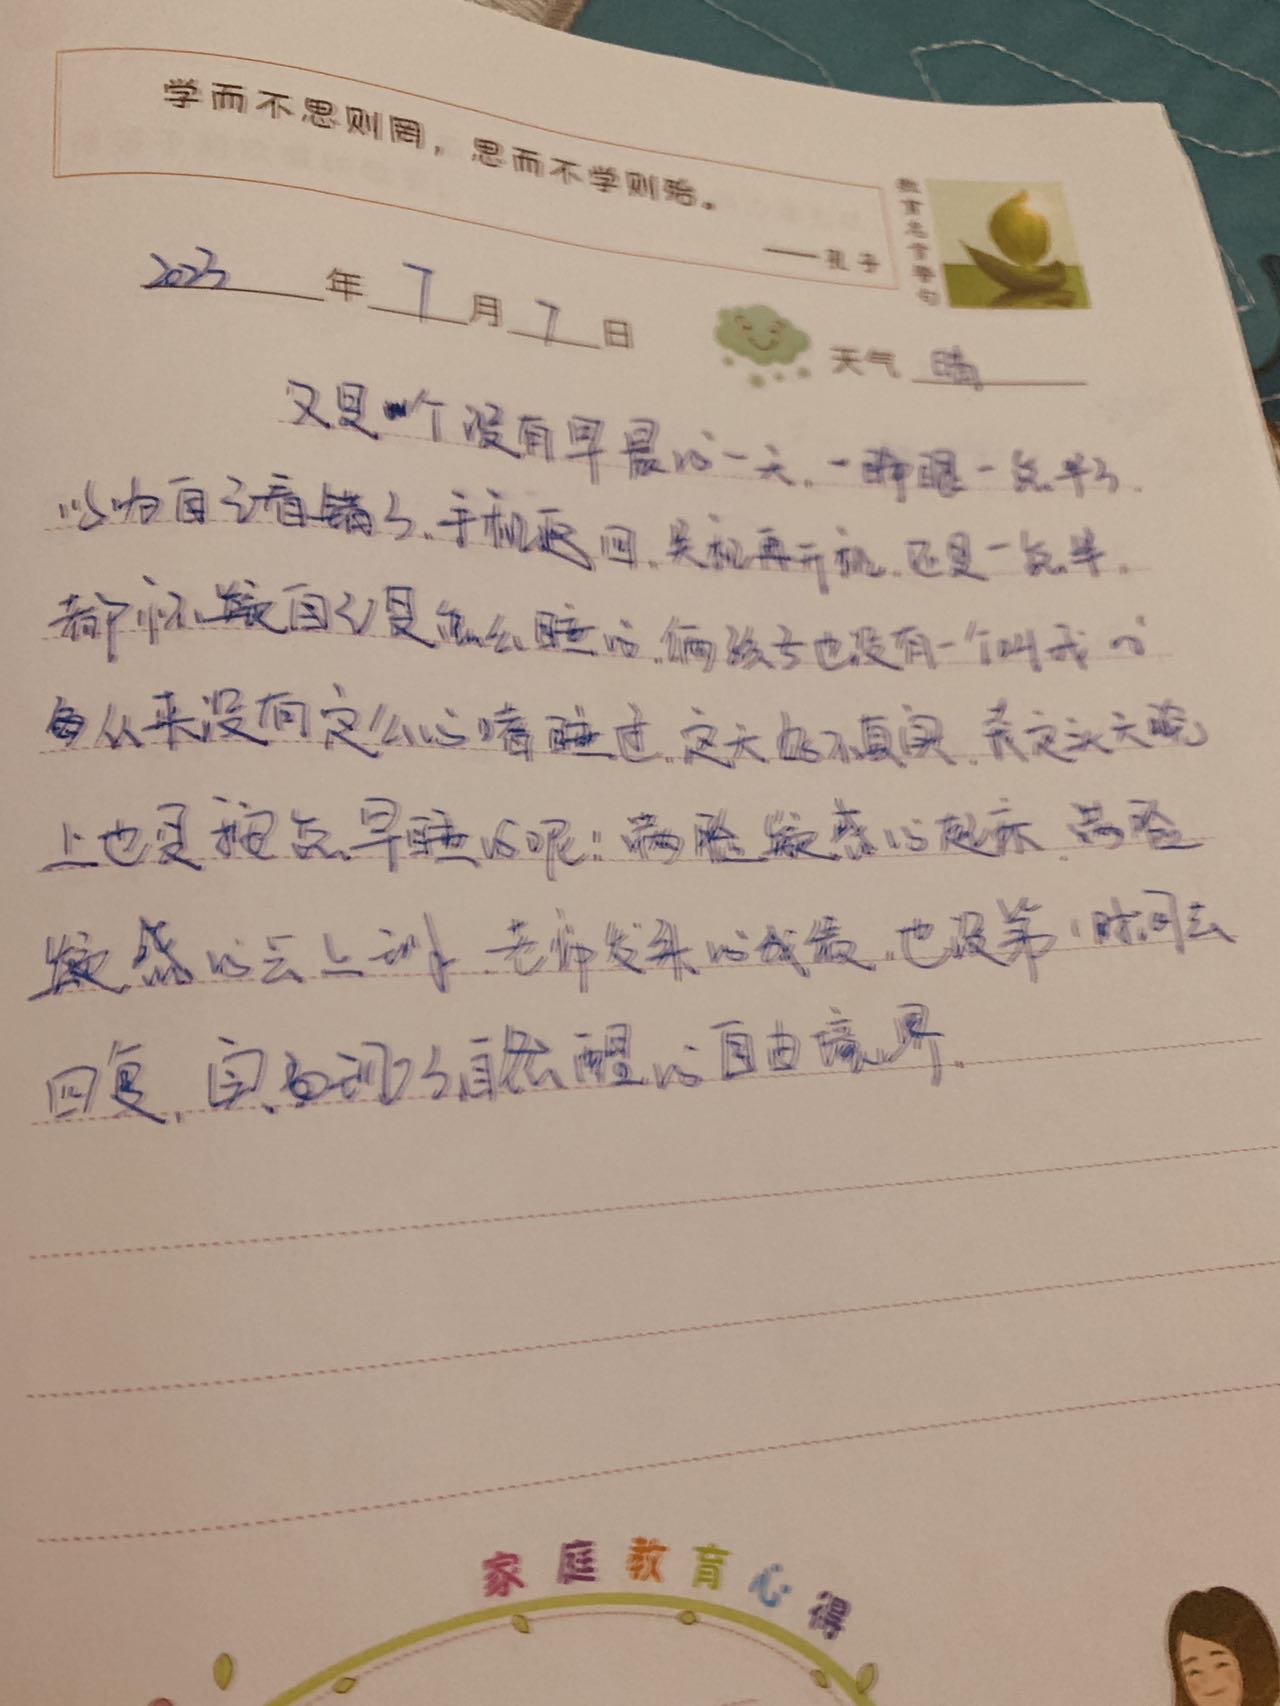 学而不思则罔，思而不学则殆。
——孔子
教育名言警句
2023年7月7日
天气 晴
又是一个没有早晨的一天，一睁眼一点半了
以为自己看错了，手机返回，关机再开机，还是一点半，
都怀疑自己是怎么睡的，俩孩子也没有一个叫我的
从来没有这么的睡过，这天好不真实，头天晚
上也是按点早睡的呢！满脸疑惑的起床，满脸
疑惑的去上课，老师发来的成绩，也没第1时间去
回复，实现了自然醒的自由境界。
家庭教育心得